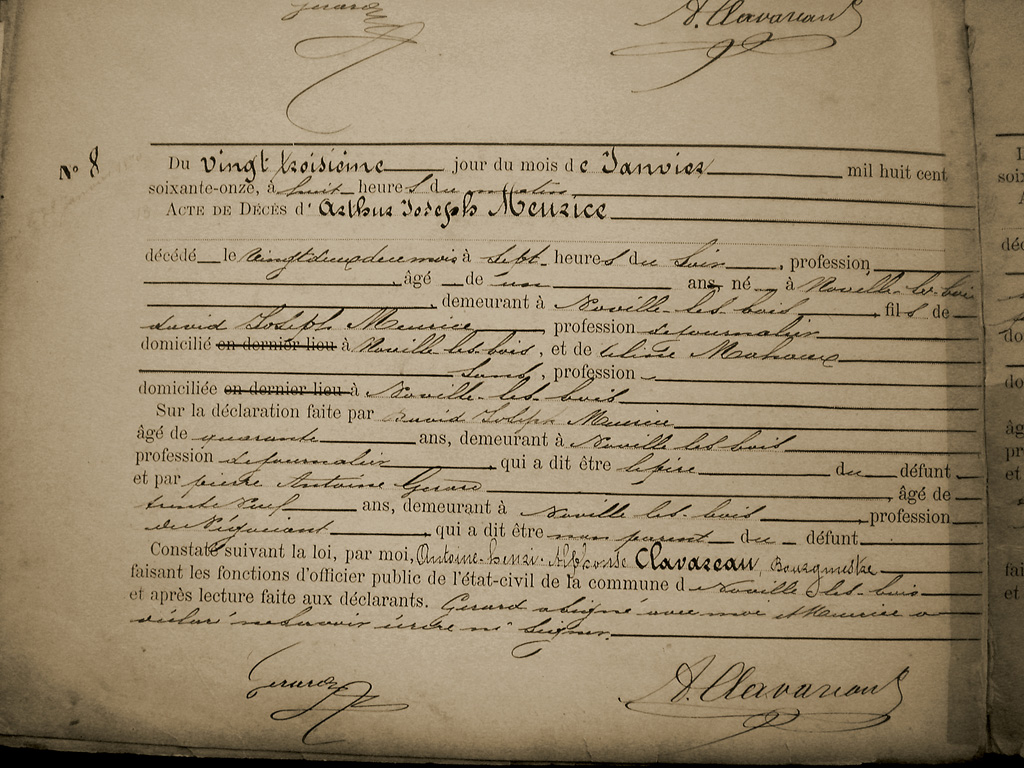 Gerard
A. Clavareau
N° 8
Du vingt troisième jour du mois de Janvier mil huit cent
soixante-onze, à huit heures du matin
ACTE DE DÉCÈS d' Arthur Joseph Meurice
décédé le vingt deux de ce mois à sept heures du soir, profession
, âgé de un ans, né à Noville-les-bois
, demeurant à Noville-les-bois, fils de
david Joseph Meurice, profession de journalier
domicilié en dernier lieu à Noville-les-bois, et de
Sans, profession
domiciliée en dernier lieu à Noville-les-bois
Sur la déclaration faite par David Joseph Meurice
âgé de quarante ans, demeurant à Noville les bois
profession de journalier, qui a dit être le père du défunt
et par pierre Antoine Gerard, âgé de
trente neuf ans, demeurant à Noville les-bois, profession
de Négociant, qui a dit être non parent du défunt.
Constaté suivant la loi, par moi, Antoine-henri-Alphonse Clavareau, Bourgmestre
faisant les fonctions d'officier public de l'état-civil de la commune d Noville-les-bois
et après lecture faite aux déclarants. Gerard a signé avec moi et Meurice a
déclaré ne savoir écrire ni signer.
Gerard
A. Clavareau